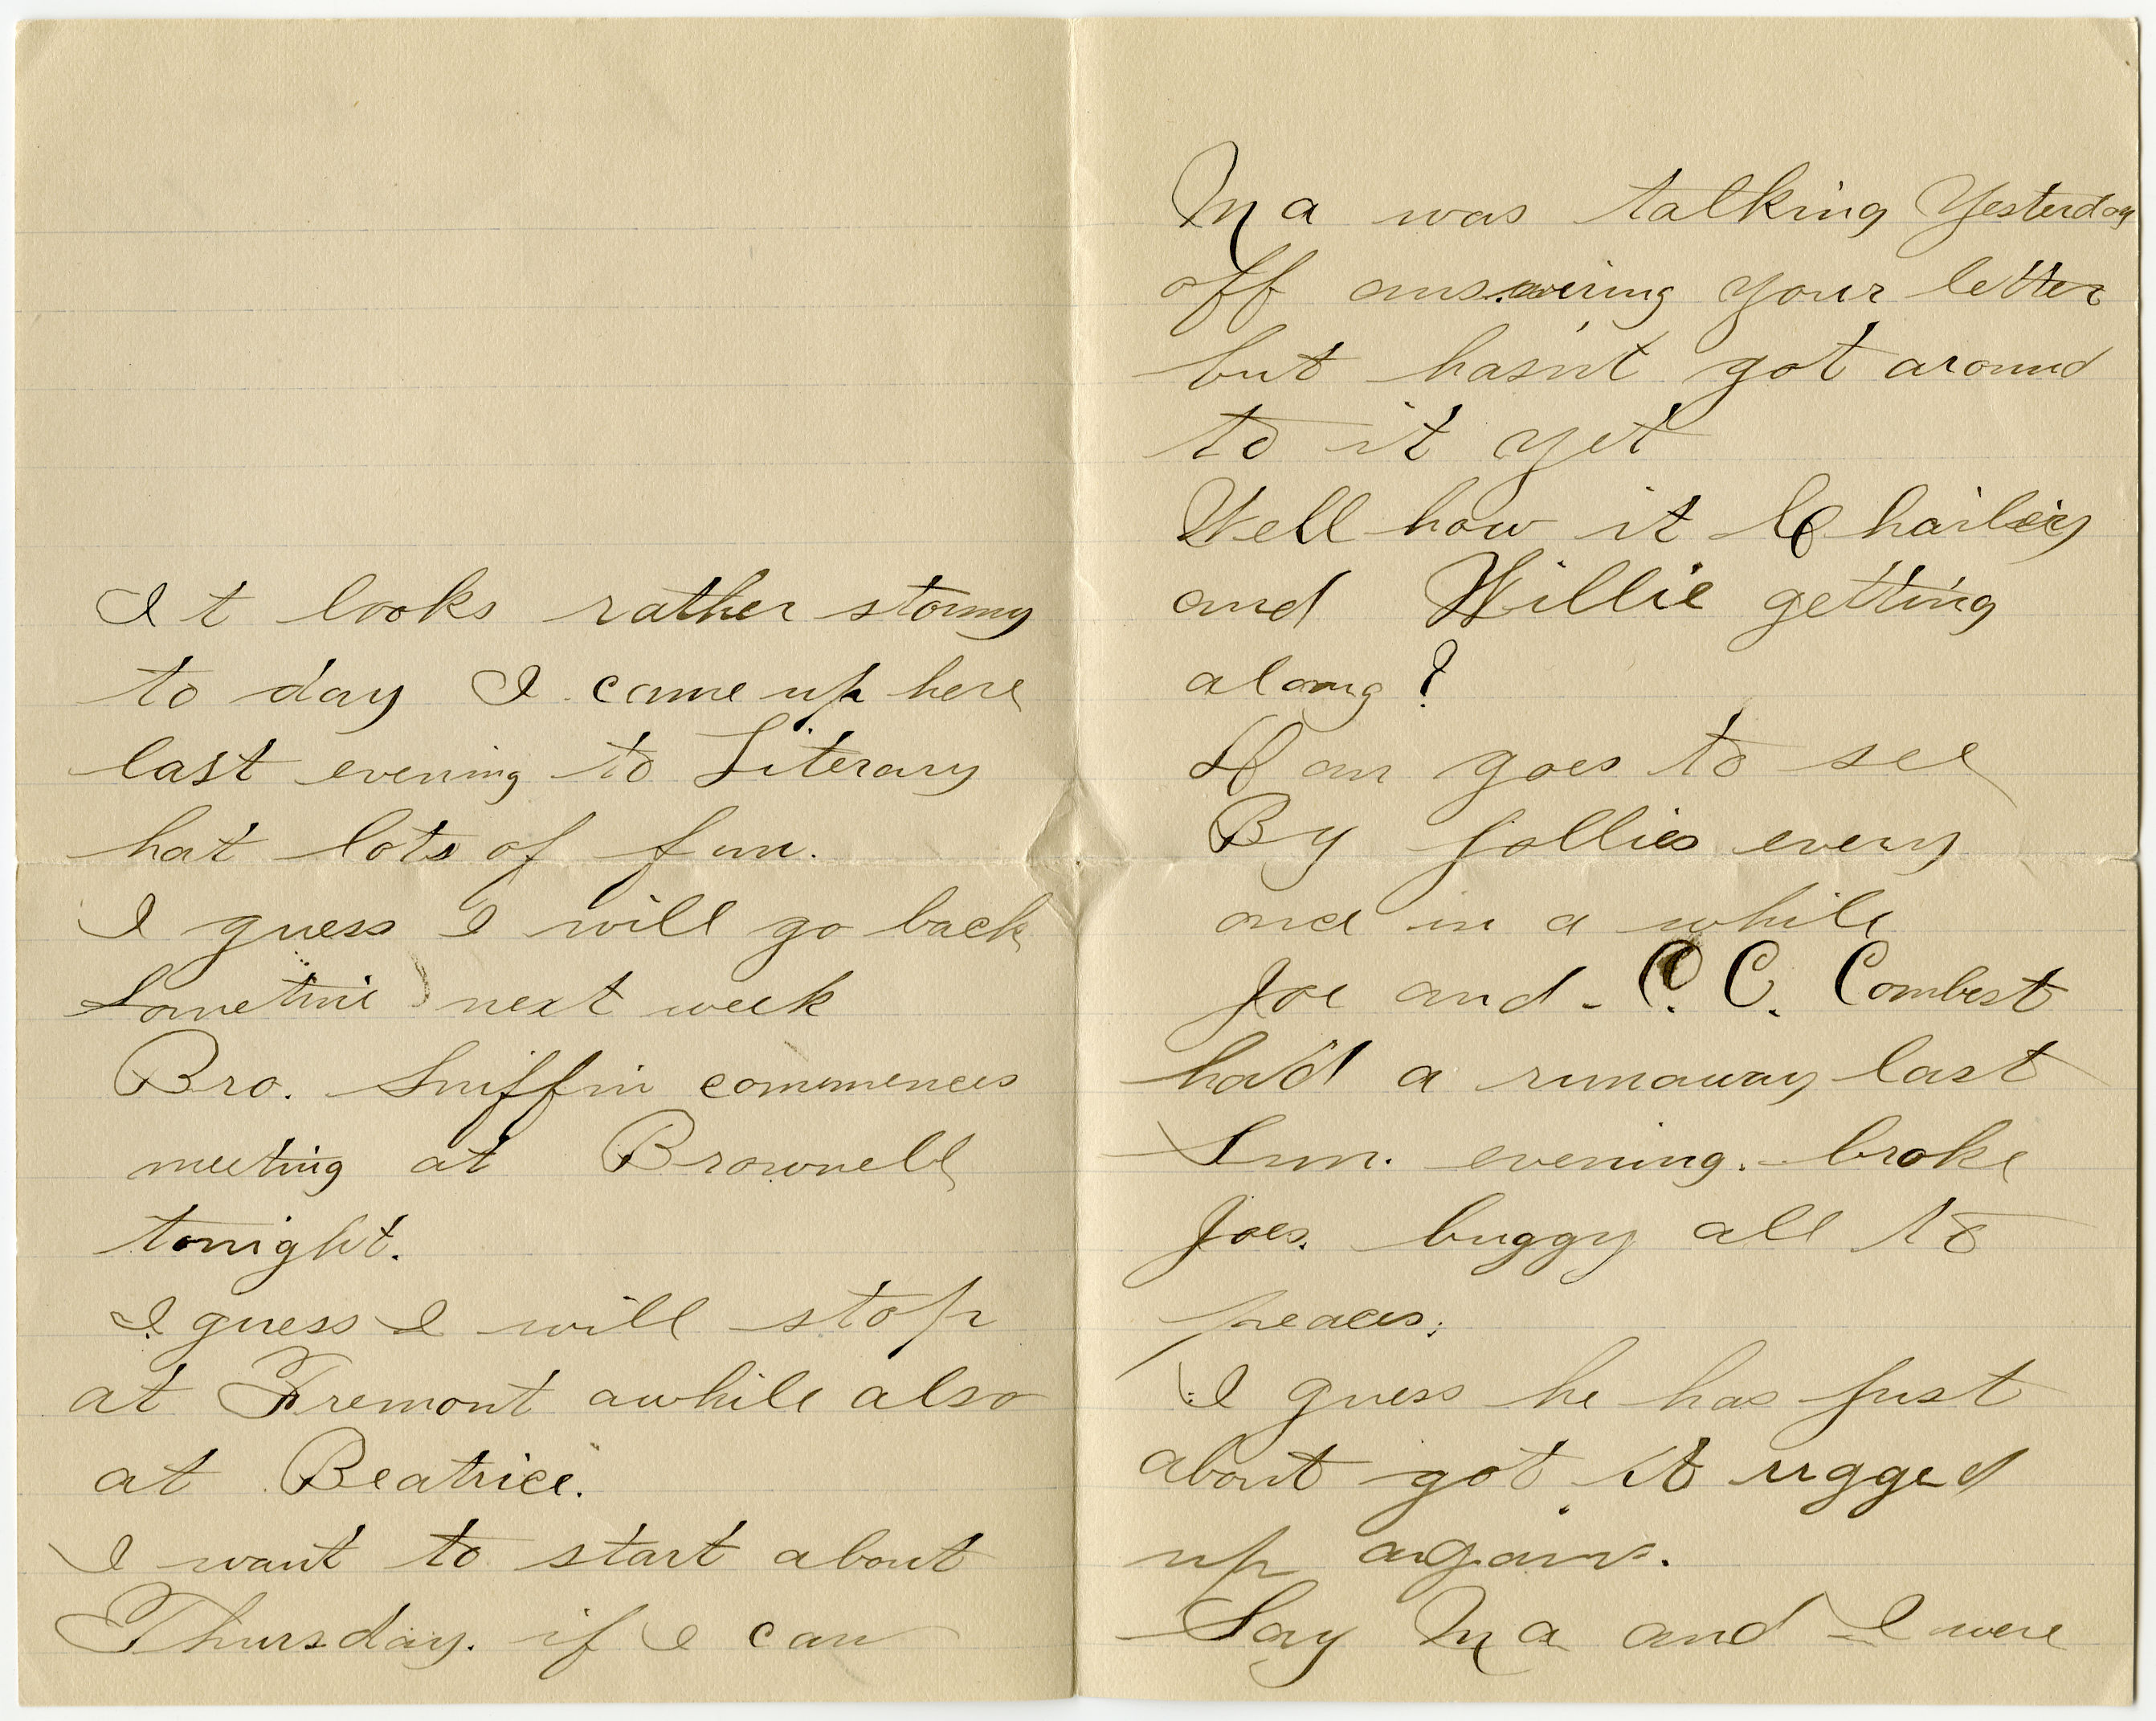 It looks rather stormy
to day I came up here
last evening to Literary
hat lots of fun.
I guess I will go back
Sometime next week
Bro. Sniffin commences
meeting at Brownell
tonight.
I guess I will stop
at Fremont awhile also
at Beatrice.
I want to start about
Thursday. if I can
Ma was talking Yesterday
off answering your letter
but hasn't got around
to it yet
Well how it Chailey
and Willie getting
along?
goes to see
By jollies every
once in a while
Joe and C. C. Combest
had a runaway last
Sun. evening. broke
Joes. buggy all to
peaces.
I guess he has just
about got it rigged
up again.
Say Ma and I were